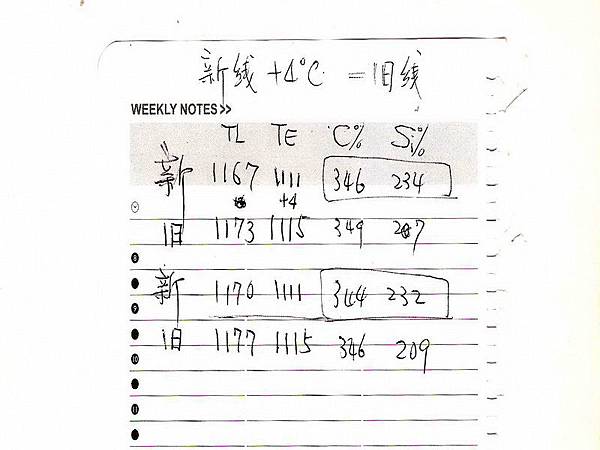 新线 +4°C = 旧线
WEEKLY NOTES>>
TL TE C% Si%
新 1167 1111 346 234
+4
旧 1173 1115 349 207
新 1170 1111 344 232
旧 1177 1115 346 209
8
9
10
11